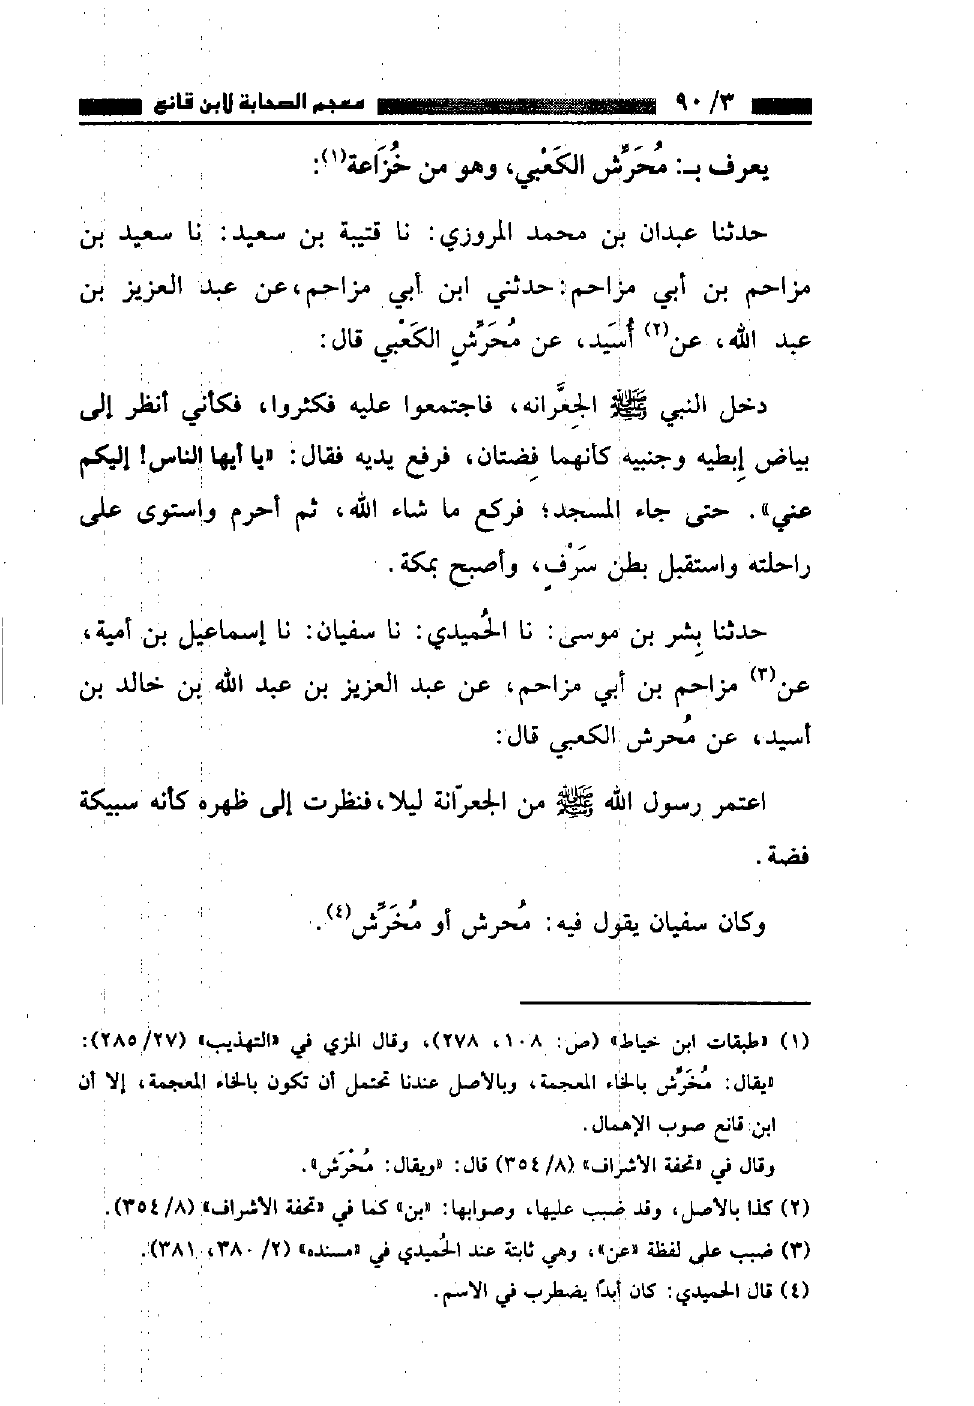 ٩٠/٣ معجم الصحابة لابن قانع
يعرف بـ: مُحَرِّش الكَعْبي، وهو من خُزَاعة(١):
حدثنا عبدان بن محمد المروزي: نا قتيبة بن سعيد: نا سعيد بن
مزاحم بن أبي مزاحم: حدثني ابن أبي مزاحم، عن عبد العزيز بن
عبد الله، عن(٢) أُسَيد، عن مُحَرِّشٍ الكَعْبي قال:
دخل النبي ﷺ الجِعَّرانه، فاجتمعوا عليه فكثروا، فكأني أنظر إلى
بياض إبطيه وجنبيه كأنهما فِضتان، فرفع يديه فقال: «يا أيها الناس! إليكم
عني». حتى جاء المسجد؛ فركع ما شاء الله، ثم أحرم واستوى على
راحلته واستقبل بطن سَرْفٍ، وأصبح بمكة.
حدثنا بِشر بن موسى: نا الحُميدي: نا سفيان: نا إسماعيل بن أمية،
عن(٣) مزاحم بن أبي مزاحم، عن عبد العزيز بن عبد الله بن خالد بن
أسيد، عن مُحرش الكعبي قال:
اعتمر رسول الله ﷺ من الجعرّانة ليلا، فنظرت إلى ظهره كأنه سبيكة
فضة.
وكان سفيان يقول فيه: مُحرش أو مُخَرِّش(٤).
(١) «طبقات ابن خياط» (ص: ١٠٨، ٢٧٨)، وقال المزي في «التهذيب» (٢٨٥/٢٧):
«يقال: مُخَرِّش بالخاء المعجمة، وبالأصل عندنا تحتمل أن تكون بالخاء المعجمة، إلا أن
ابن قانع صوب الإهمال.
وقال في «تحفة الأشراف» (٣٥٤/٨) قال: «ويقال: مُحْرَش».
(٢) كذا بالأصل، وقد ضبب عليها، وصوابها: «بن» كما في «تحفة الأشراف» (٣٥٤/٨).
(٣) ضبب على لفظة «عن»، وهي ثابتة عند الحُميدي في «مسنده» (٢/ ٣٨٠، ٣٨١).
(٤) قال الحميدي: كان أبدًا يضطرب في الاسم.